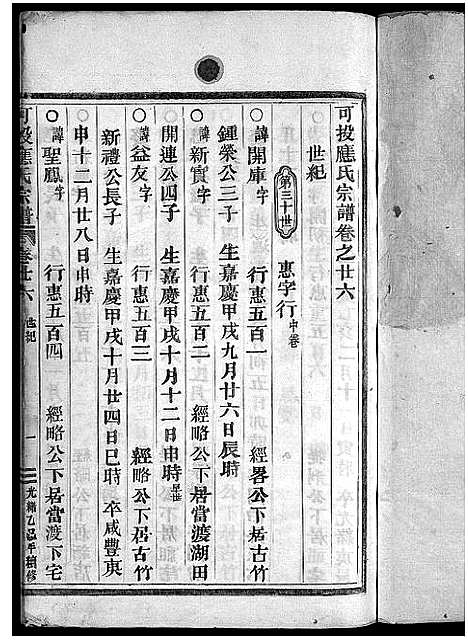 可投應氏宗譜卷之廿六
世紀
第三十世 惠字行中卷
○諱開庫字 行惠五百一 經畧公下居古竹
鍾榮公三子 生嘉慶甲戌九月廿六日辰時
○諱新實字 行惠五百二 經略公下居當渡湖田
開連公四子 生嘉慶甲戌十月十二日申時
○諱益友字 行惠五百三 經略公下居古竹
新禮公長子 生嘉慶甲戌十月廿四日巳時 卒咸豐庚
申十二月廿八日申時
○諱聖鳳字 行惠五百四 經略公下居當渡下宅
可投應氏宗譜 卷廿六 世紀 一 光緒乙巳年續修